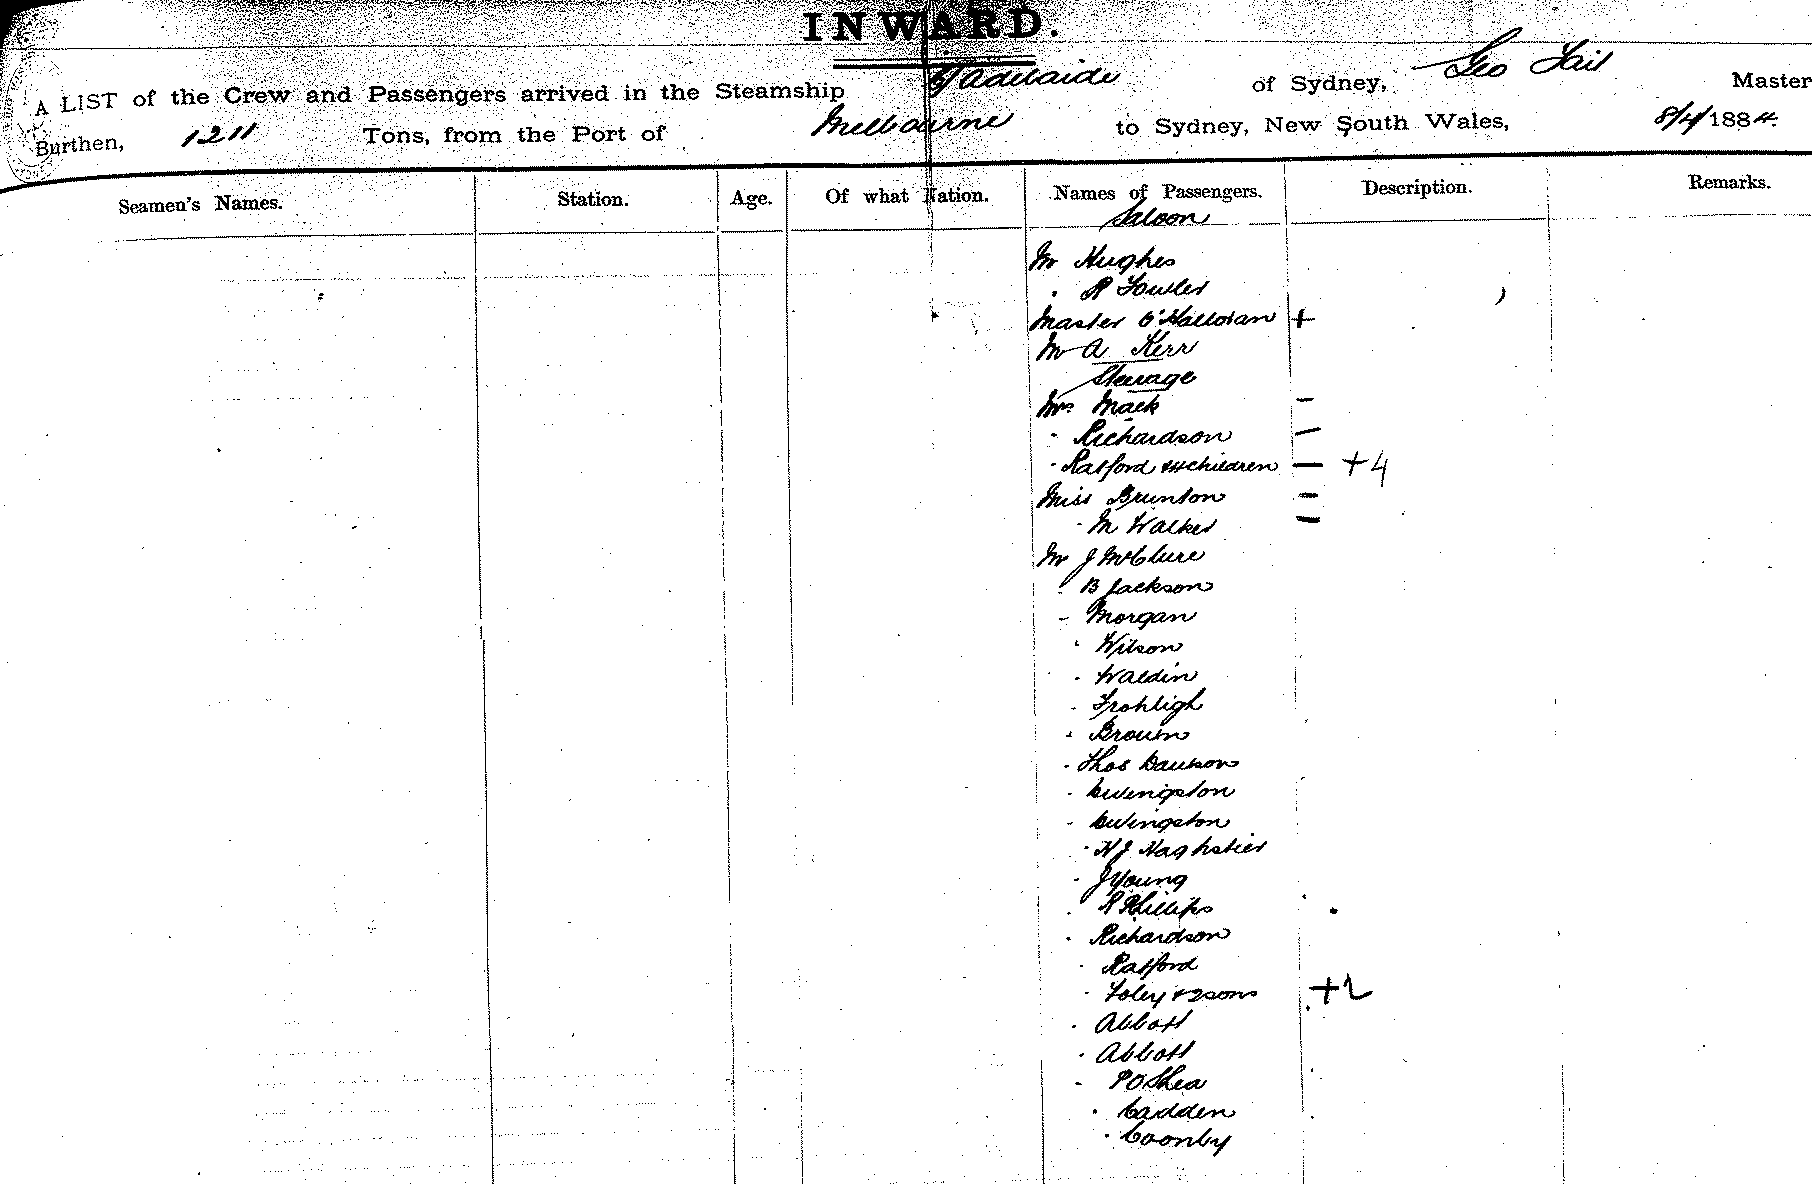 INWARD.
A LIST of the Crew and Passengers arrived in the Steamship Adelaide of Sydney, Geo Lail Master
Burthen, 1211 Tons, from the Port of Melbourne to Sydney, New South Wales, 8/4/1884.
Seamen's Names. Station. Age. Of what Nation. Names of Passengers. Description. Remarks.
Saloon
Mr Hughes
" R Fowler
Master O'Halloran +
Mr A Kerr
Steerage
Mrs Mack –
" Richardson –
" Ratford & 4 children – +4
Miss Brunton –
" M Walker –
Mr J McClure
" B Jackson
" Morgan
" Wilson
" Waldin
" Frohligh
" Brown
" Thos Dawson
" Livingston
" Livingston
" H J
" J Young
" R Phillips
" Richardson
" Ratford
" Foley & 2 sons +2
" Abbott
" Abbott
" P O Shea
" Cadden
" Coonby